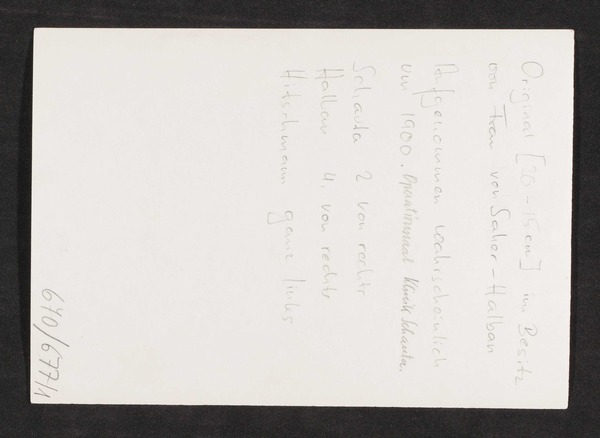 Original [20-15cm] im Besitz
von Frau von Saher-Halban
Aufgenommen wahrscheinlich
um 1900. Operationssaal Klinik Schauta.
Schauta 2 von rechts
Halban 4. von rechts
Hitschmann ganz links
670/677/1